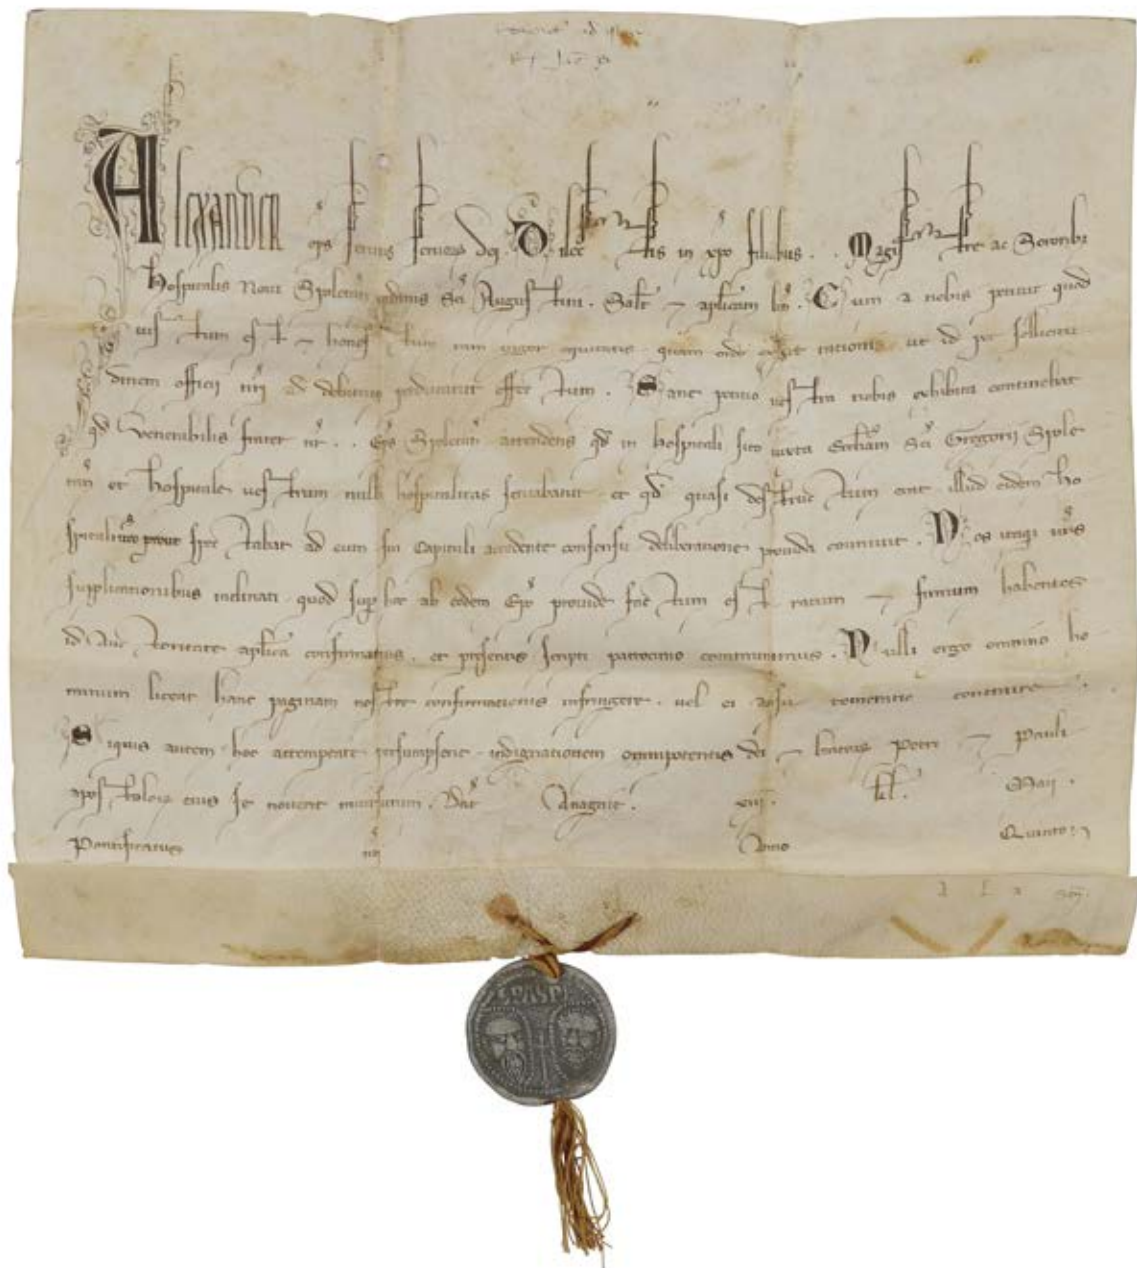 Alexander ep̄s seruus seruorꝫ dei. Dilectis in xp̄o filiabus .. Magistre ac Sororibꝫ
Hospitalis Noui Spoletan̄ ordinis Sc̄i Augustini. Salt̄ ⁊ aplicam̄ bn̄. Cum a nobis petitur quod
iustum est ⁊ honestum tam uigor equitatis quam ordo exigit rationis ut id per sollicitu
dinem officii nr̄i ad debitum perducatur effectum. Sane petitio uestra nobis exhibita continebat
qd̄ Venerabilis frater nr̄ .. Ep̄s Spoletan̄ attendens qd̄ in hospitali sito iuxta Eccl̄iam Sc̄i Gregorii Spole
tan̄ et hospitale uestrum nulla hospitalitas seruabatur et qd̄ quasi destructum erat illud eidem ho
spitali uro prout spectabat ad eum sui Capituli accedente consensu deliberatione prouida
Nos itaqꝫ ur̄is
supplicationibus inclinati quod super hoc ab eodem Ep̄o prouide factum est ratum ⁊ firmum habentes
id auctoritate aplica confirmamus et presentis scripti patrocinio communimus. Nulli ergo omnino ho
minum liceat hanc paginam nostre confirmationis infringere uel ei ausu temerario contraire.
Siquis autem hoc attemptare presumpserit indignationem omnipotentis dei ⁊ beatorꝫ Petri ⁊ Pauli
apostolorꝫ eius se nouerit incursurum. Dat̄ Anagnie. xiii. kl̄. Maii.
Pontificatus nr̄i Anno Quinto
SPASPE